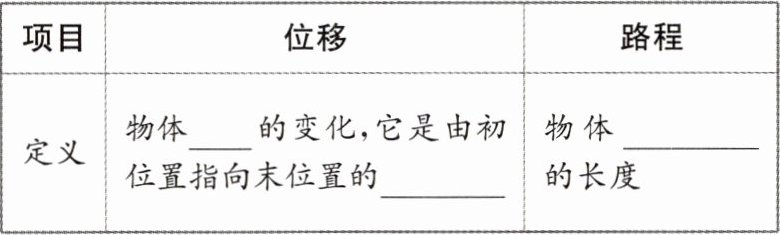 项目 位移 路程
物体____的变化,它是由初 物体________
定义
位置指向末位置的________ 的长度